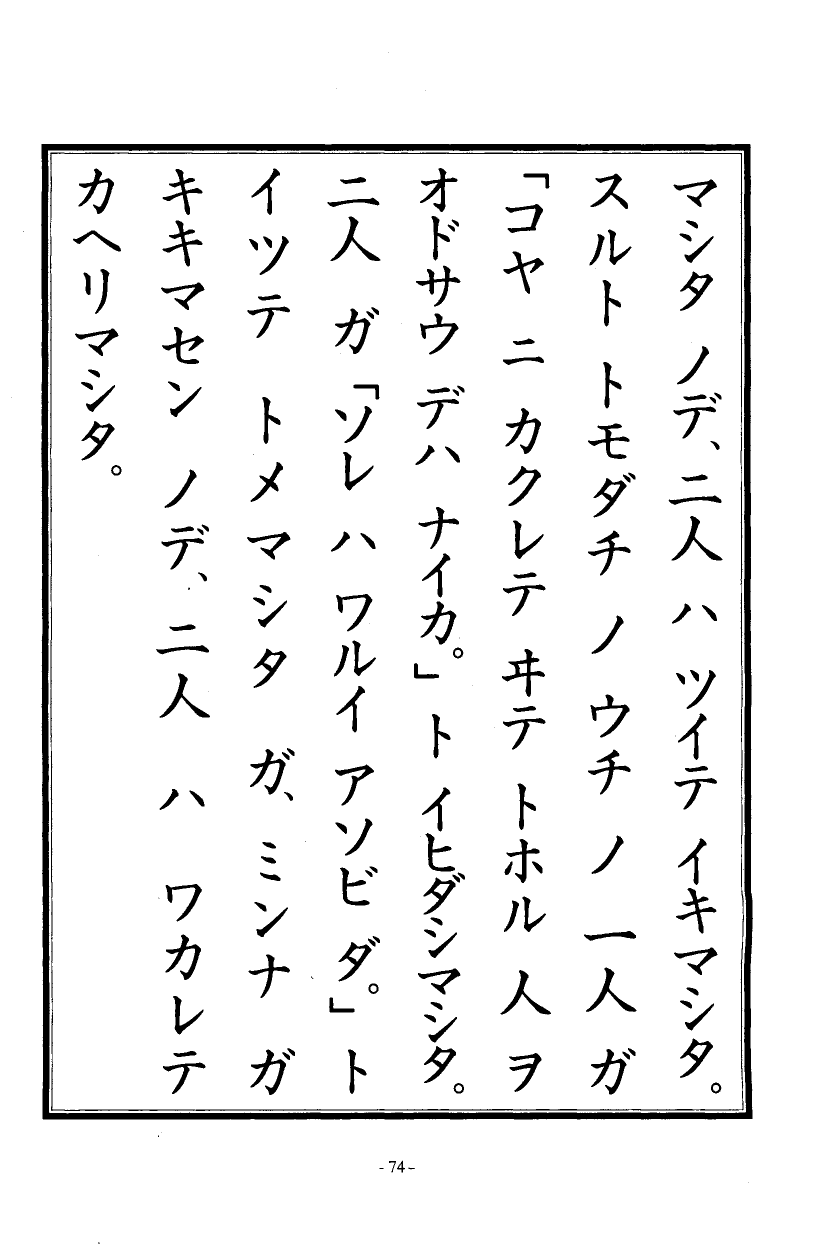 マシタ ノデ、二人 ハ ツイテ イキマシタ。
スルト トモダチ ノ ウチ ノ 一人 ガ
「コヤ ニ カクレテ ヰテ トホル 人 ヲ
オドサウ デハ ナイカ。」ト イヒダシマシタ。
二人 ガ「ソレ ハ ワルイ アソビ ダ。」ト
イツテ トメマシタ ガ、ミンナ ガ
キキマセン ノデ、二人 ハ ワカレテ
カヘリマシタ。
- 74 -